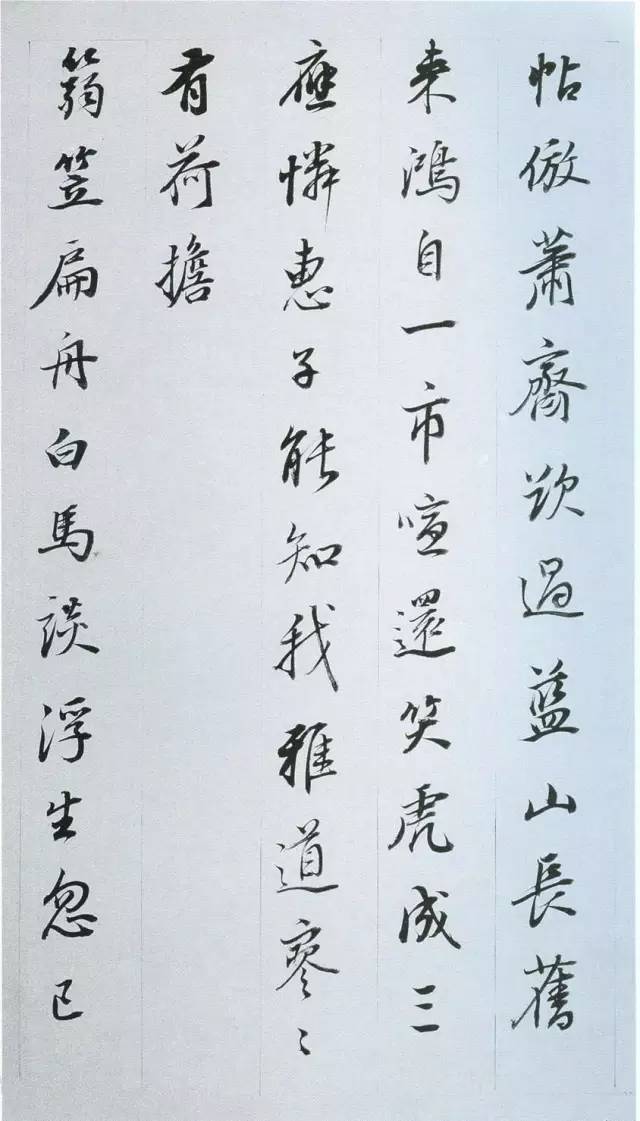 帖倣蕭齋欵過藍山長舊
来鴻自一市喧還笑虎成三
應憐惠子能知我雅道寥〻
有荷擔
篛笠扁舟白馬談浮生忽已